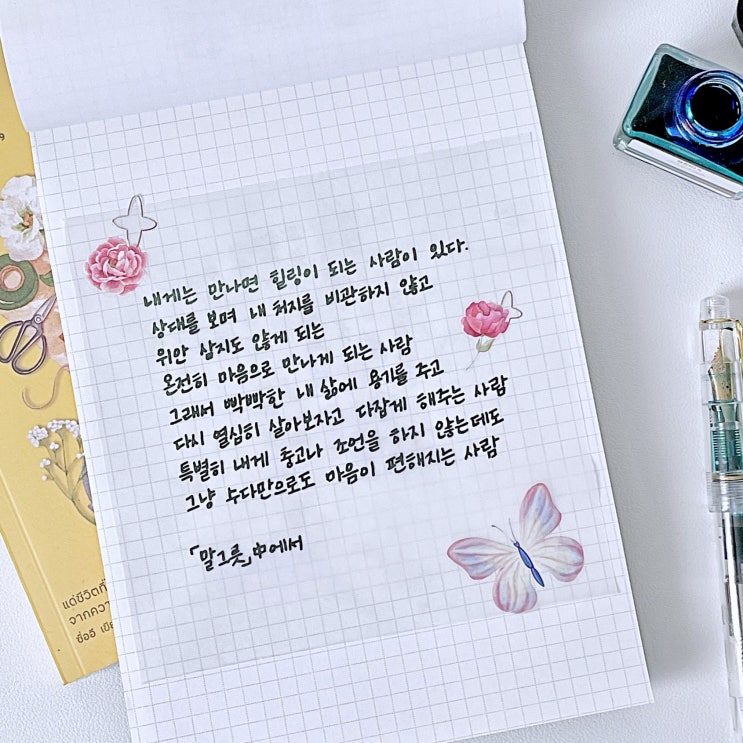 내게는 만나면 힐링이 되는 사람이 있다.
상대를 보며 내 처지를 비관하지 않고
위안 삼지도 않게 되는
온전히 마음으로 만나게 되는 사람
그래서 빡빡한 내 삶에 용기를 주고
다시 열심히 살아보자고 다잡게 해주는 사람
특별히 내게 충고나 조언을 하지 않는데도
그냥 수다만으로도 마음이 편해지는 사람
「말그릇」中에서
9
แด่ชีวิตที่
จากควา
ซื่ออี เขีย